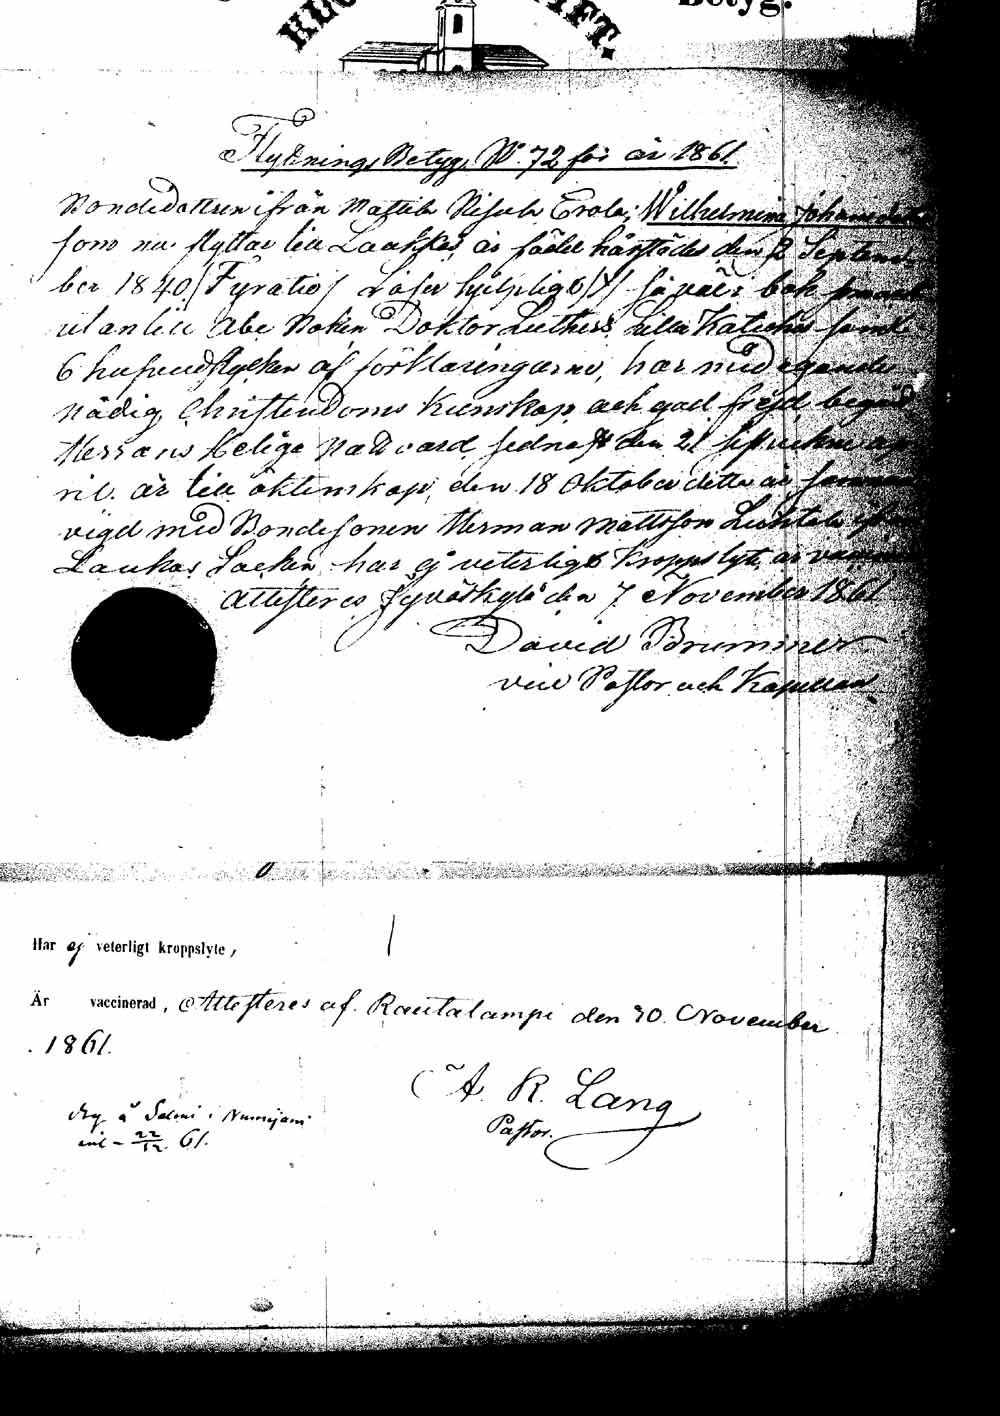 Betyg.
Flyttnings Betyg. N:o 72 för år 1861.
Bondedottren ifrån Erola, Wilhelmina Johansdotter
som nu flyttar till Laukkas, är född härstädes den 2 Septem-
ber 1840 /Fyratio/ Läser hjelpligt /:/ såväl i bok som
utantill Abc Boken Doktor Luthers Lilla Kateches samt
6 hufvudstycken af förklaringarne, har med egande
nödig Christendoms Kunskap och god frejd begått
Herrans Helige Nattvard sednast den 21 ap
ril. är till äktenskap, den 18 Oktober detta år samman
vigd med Bondesonen Herman Mattsson ifrån
Laukas Socken, har ej veterligt Kroppslyte, är
Attesteres Jyväskylä den 7 November 1861
David Brummer
vice Pastor och Kapellan
Har ej veterligt kroppslyte,
Är vaccinerad, Attesteres af Rautalampi den 30. November
1861.
A. R. Lang
Pastor.
å Salmi i
22/12 61.